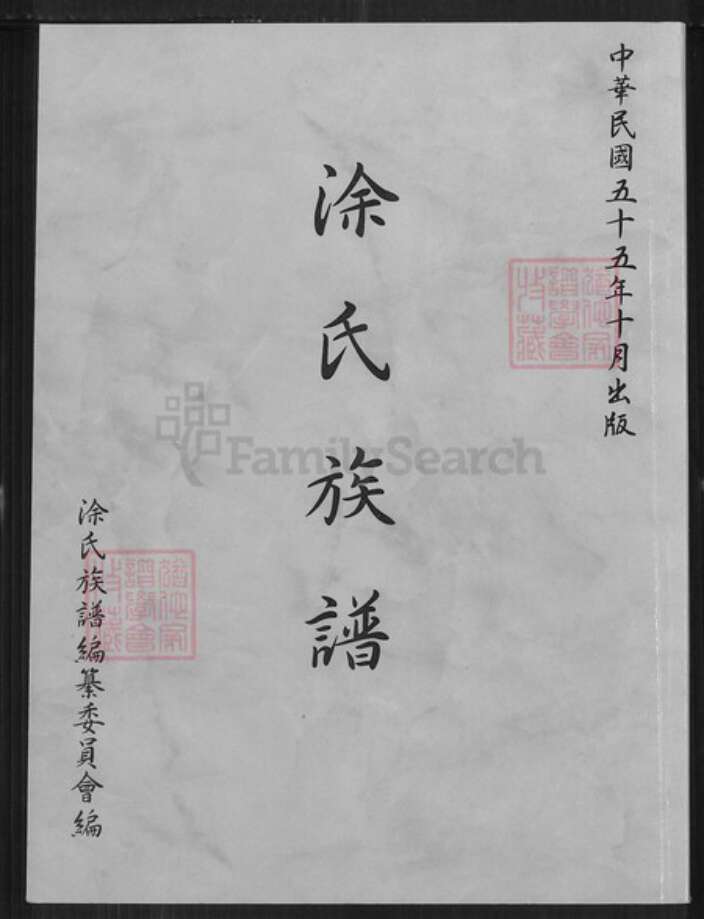 中華民國五十五年十月出版
涂氏族譜
涂氏族譜編纂委員會編
FamilySearch